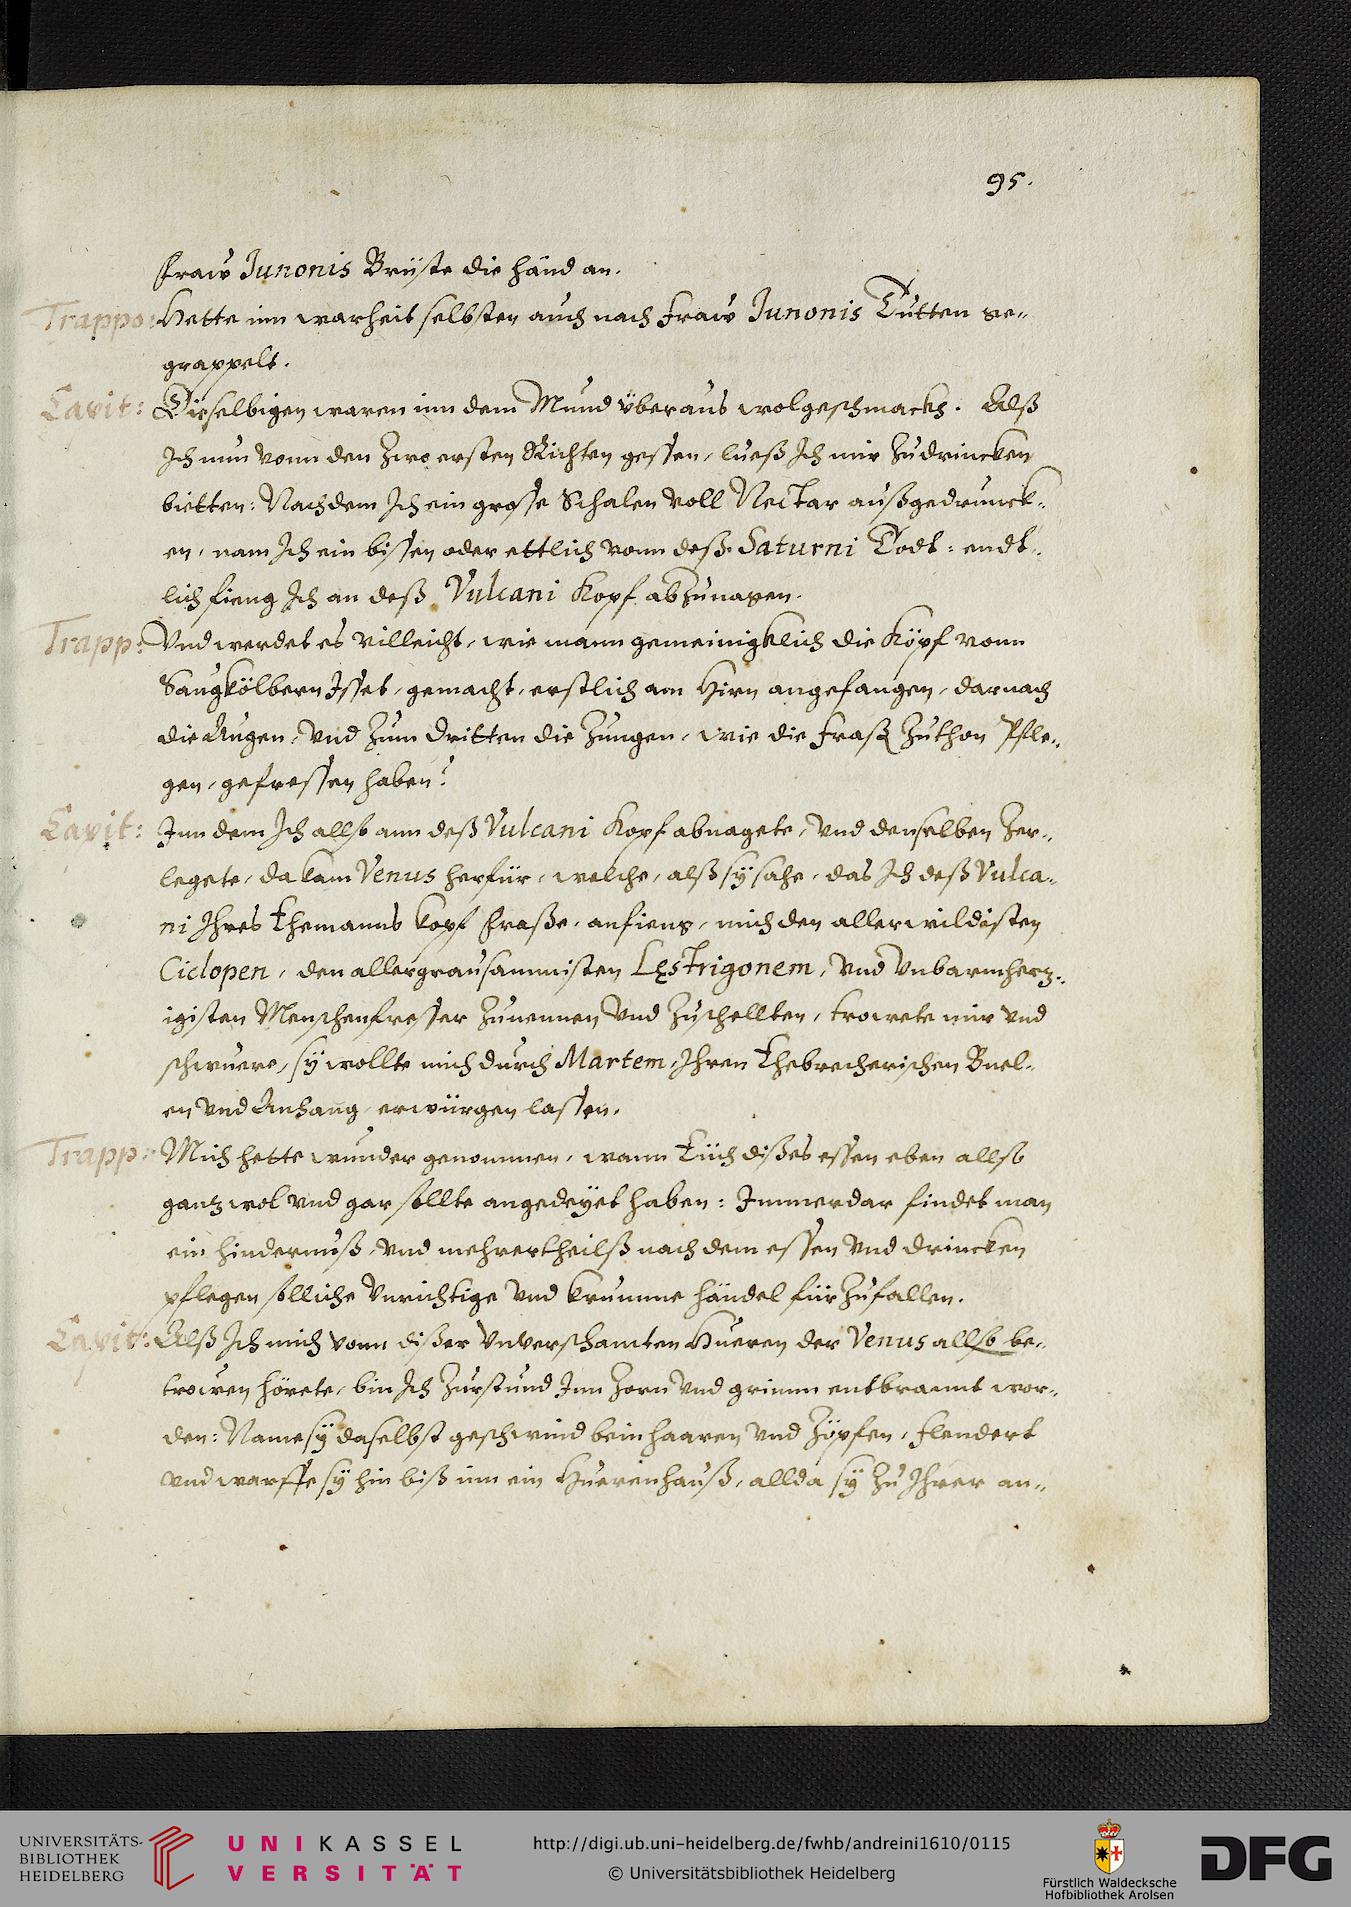 95.
Fraw Junonis Brüste die händ an.
Trappo: Hette inn warheit selbsten auch nach Fraw Junonis Dutten ge=
grappelt.
Capit: Dieselbigen waren inn dem Mund überaus wolgeschmackh. Alß
Ich nun vonn den Zwo ersten Richten gessen, liess Ich mir Zudrincken
bietten: Nachdem Ich ein grosse Schalen voll Nectar außgedrunck=
en, nam Ich ein bissen oder ettlich vonn deß Saturni : endt=
lich fieng Ich an deß Vulcani Kopf abzunagen.
Trapp: Vnd werdet es villeicht, wie mann gemeinigklich die Köpf vonn
Saugkölbern Isset, gemacht, erstlich am Hirn angefangen, darnach
die Augen, vnd Zum dritten die Zungen, wie die Zuthon Pfle=
gen, gefressen haben?
Capit: Inn dem Ich allso ann deß Vulcani Kopf abnagete, vnd denselben Zer=
legete, da kam Venus herfür, welche, alß sÿ sahe, das Ich deß Vulca=
ni Ihres Ehemanns kopf fraße, anfieng, mich den allerwildisten
Ciclopen, den allergrausammisten Lęstrigonem, vnd vnbarmhertz=
igisten Menschenfresser Zunennen vnd Zuschellten, trowete mir vnd
schwuere, sÿ wollte mich durch Martem, Ihren Ehebrecherischen Buel=
en vnd Anhang erwürgen lassen.
Trapp: Mich hette wunder genommen, wann Eüch dißes essen eben allso
gantz wol vnd gar sollte angedeÿet haben: Immerdar findet man
ein hindernuß, vnd mehrertheilß nach dem essen vnd drincken
pflegen solliche vnrichtige vnd krumme händel fürzufallen.
Capit: Alß Ich mich vonn dißer vnverschamten Hueren der Venus allso be=
trowen hörete, bin Ich Zurstund Inn Zorn vnd grimm entbrannt wor=
den: Name sÿ daselbst geschwind bein haaren vnd Zöpfen, flendert
vnd warffe sÿ hin biß inn ein Huerenhauß, allda sÿ Zu Ihrer an=
UNIVERSITÄTS-
BIBLIOTHEK
HEIDELBERG
UNIKASSEL
VERSITÄT
http://digi.ub.uni-heidelberg.de/fwhb/andreini1610/0115
© Universitätsbibliothek Heidelberg
Fürstlich Waldecksche
Hofbibliothek Arolsen
DFG